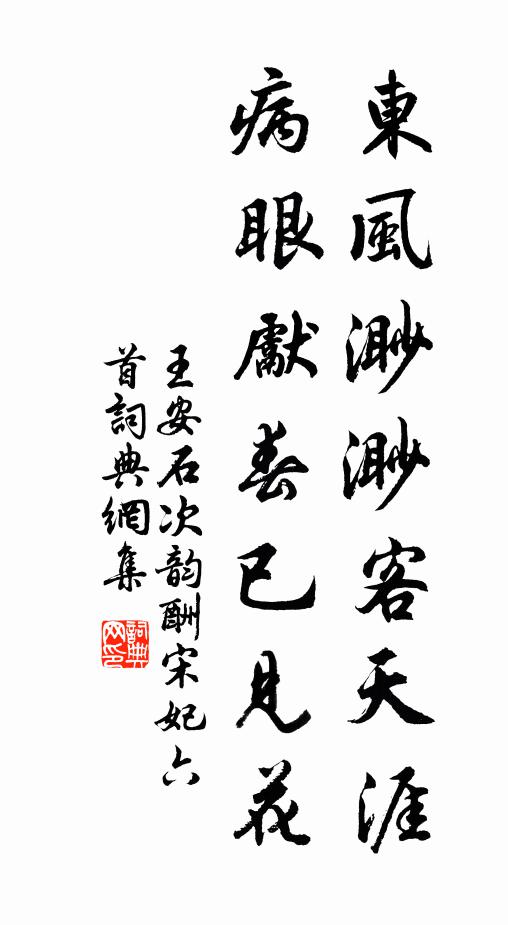 東風渺渺客天涯
病眼獻春已見花
王安石次韵酬宋妃六
首詞典網集
詞典網印